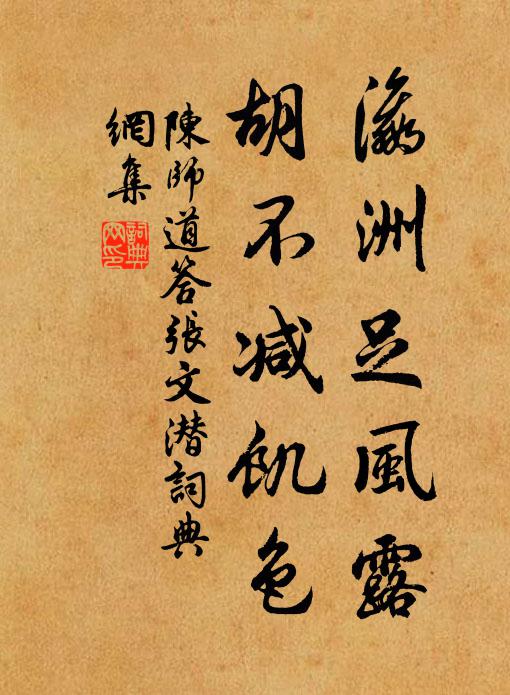 瀛洲足風露
胡不減飢色
陳師道答張文潜詞典
網集
詞典
网印